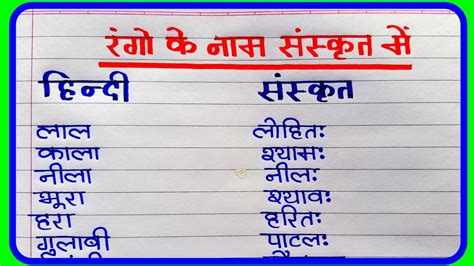 रंगो के नाम संस्कृत में
हिन्दी संस्कृत
लाल लोहितः
काला श्यामः
नीला नीलः
भूरा श्यावः
हरा हरितः
गुलाबी पाटलः